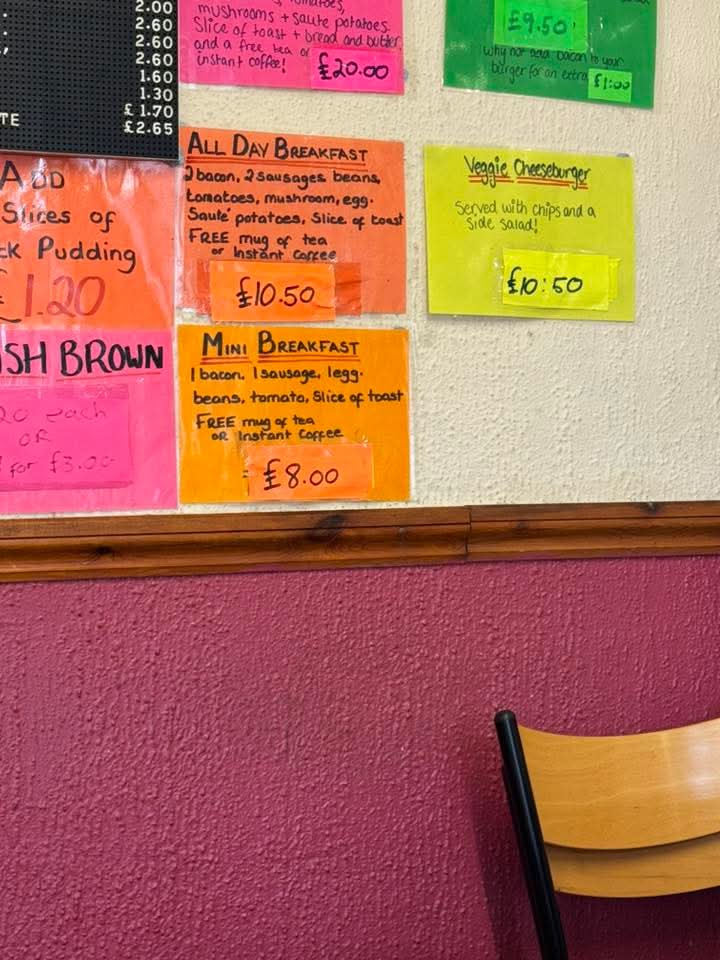 2.00
2.60
2.60
2.60
1.60
1.30
£ 1.70
£2.65
mushrooms + saute potatoes.
Slice of toast + bread and butter
and a free tea or
instant coffee!
£20.00
£9.50
Why not add bacon to your
burger for an extra
£1:00
ADD
Slices of
Pudding
1.20
ALL DAY BREAKFAST
2 bacon, 2 sausages beans,
tomatoes, mushroom, egg.
Saute' potatoes, Slice of toast
FREE mug of tea
or Instant Coffee
£10.50
Veggie Cheeseburger
Served with chips and a
side salad!
£10:50
BROWN
each
OR
for £3.00
MINI BREAKFAST
1 bacon, 1 sausage, 1 egg.
beans, tomato, Slice of toast
FREE mug of tea
OR Instant Coffee
£8.00